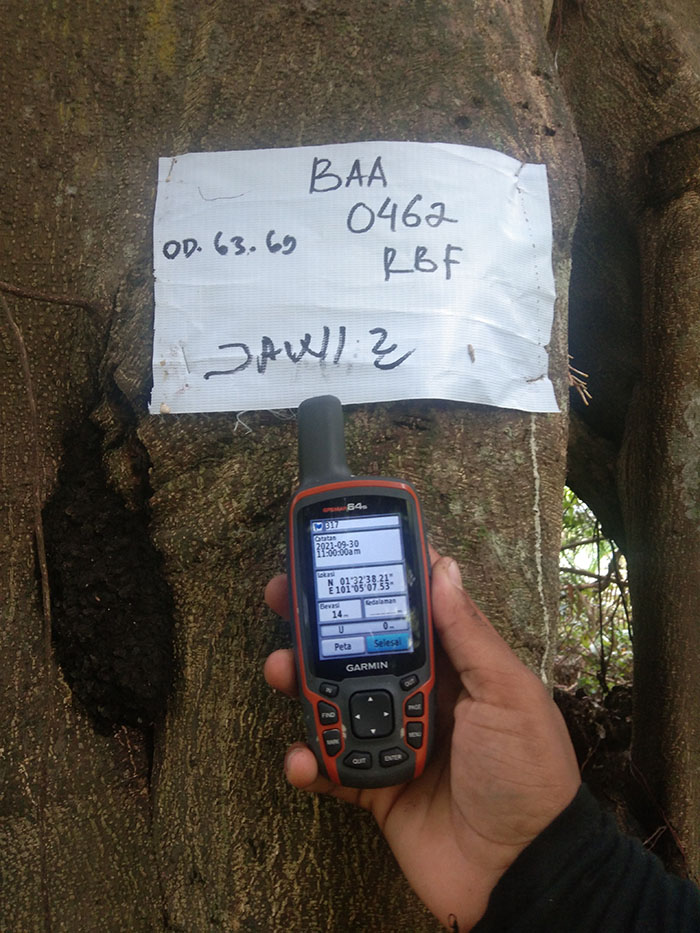 BAA
0462
OD. 63.69
RBF
JAWI 2
GPSMAP 64s
317
Catatan
2021-09-30
11:00:00am
Lokasi
N 01°32'38.21"
E 101°05'07.53"
Elevasi Kedalaman
14 m
U 0 m
Peta Selesai
GARMIN
IN OUT
FIND PAGE
MARK MENU
QUIT ENTER